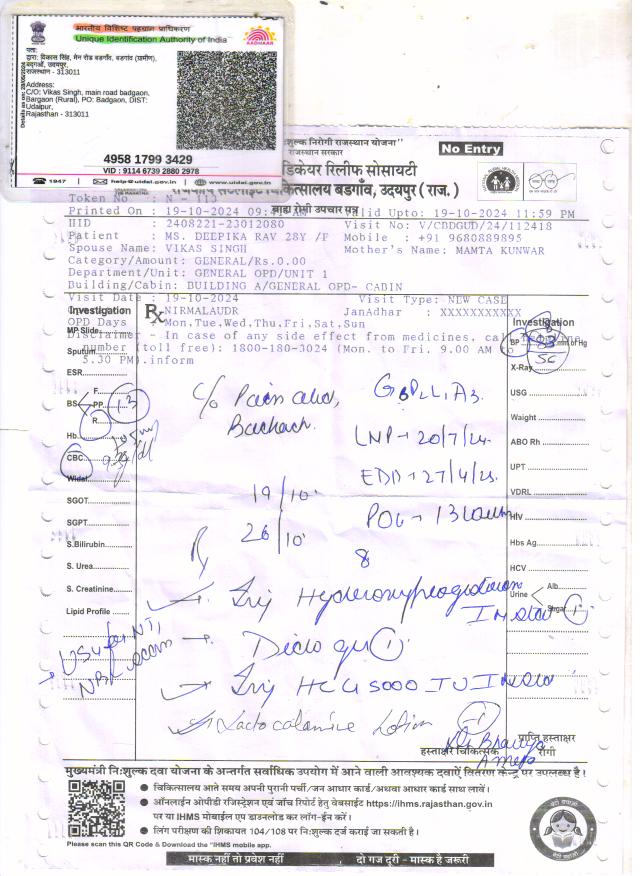 भारतीय विशिष्ट पहचान प्राधिकरण
Unique Identification Authority of India
AADHAAR
पता:
द्वारा: विकास सिंह, मेन रोड बडगाँव, बडगांव (ग्रामीण),
बड़गाँव, उदयपुर,
राजस्थान - 313011
Address:
C/O: Vikas Singh, main road badgaon,
Bargaon (Rural), PO: Badgaon, DIST:
Udaipur,
Rajasthan - 313011
4958 1799 3429
VID : 9114 6739 2880 2978
1947 | help@uidai.gov.in | www.uidai.gov.in
निःशुल्क निरोगी राजस्थान योजना"
राजस्थान सरकार
No Entry
मेडिकेयर रिलीफ सोसायटी
चिकित्सालय बडगाँव, उदयपुर (राज.)
Token No : N - 113
बाह्य रोगी उपचार पत्र
Printed On : 19-10-2024 Valid Upto: 19-10-2024 11:59 PM
HID : 2408221-23012080 Visit No: V/CBDGUD/24/112418
Patient : MS. DEEPIKA RAV 28Y /F Mobile : +91 9680889895
Spouse Name: VIKAS SINGH Mother's Name: MAMTA KUNWAR
Category/Amount: GENERAL/Rs.0.00
Department/Unit: GENERAL OPD/UNIT 1
Building/Cabin: BUILDING A/GENERAL OPD- CABIN
Visit Date : 19-10-2024 Visit Type: NEW CASE
NIRMALAUDR JanAdhar : XXXXXXXXXX
OPD Days : Mon,Tue,Wed,Thu,Fri,Sat,Sun
Disclaimer - In case of any side effect from medicines, call
number (toll free): 1800-180-3024 (Mon. to Fri. 9.00 AM to
5.30 PM).inform
Investigation
Rx
MP Slide
Sputum
ESR
BS F. PP. R.
113
Hb
CBC
Widal
SGOT
SGPT
S.Bilirubin
S. Urea
S. Creatinine
Lipid Profile
Investigation
BP mm of Hg
X-Ray
USG
Weight
ABO Rh
UPT
VDRL
HIV
Hbs Ag.
HCV
Urine Alb. Sugar
c/o Pain abd,
Backach
G3P2L1A3
LMP → 20/7/24
EDD → 27/4/25
19/10
26/10
POG → 13
8
Rx
Inj Hydroxyprogesteron
IM stat 1
Diclo gel 1
Inj HCG 5000 IU IM stat
Lacto calamine Lotion 1
USG for NT,
NB scan
हस्ताक्षर चिकित्सक
प्राप्ति हस्ताक्षर
रोगी
मुख्यमंत्री निःशुल्क दवा योजना के अन्तर्गत सर्वाधिक उपयोग में आने वाली आवश्यक दवाऐं वितरण केन्द्र पर उपलब्ध है।
चिकित्सालय आते समय अपनी पुरानी पर्ची/जन आधार कार्ड/अथवा आधार कार्ड साथ लावें।
ऑनलाईन ओपीडी रजिस्ट्रेशन एवं जाँच रिपोर्ट हेतु वेबसाईट https://ihms.rajasthan.gov.in
पर या IHMS मोबाईल एप डाउनलोड कर लॉग-ईन करें।
लिंग परीक्षण की शिकायत 104/108 पर निःशुल्क दर्ज कराई जा सकती है।
Please scan this QR Code & Download the "IHMS mobile app.
मास्क नहीं तो प्रवेश नहीं , दो गज दूरी - मास्क है जरूरी